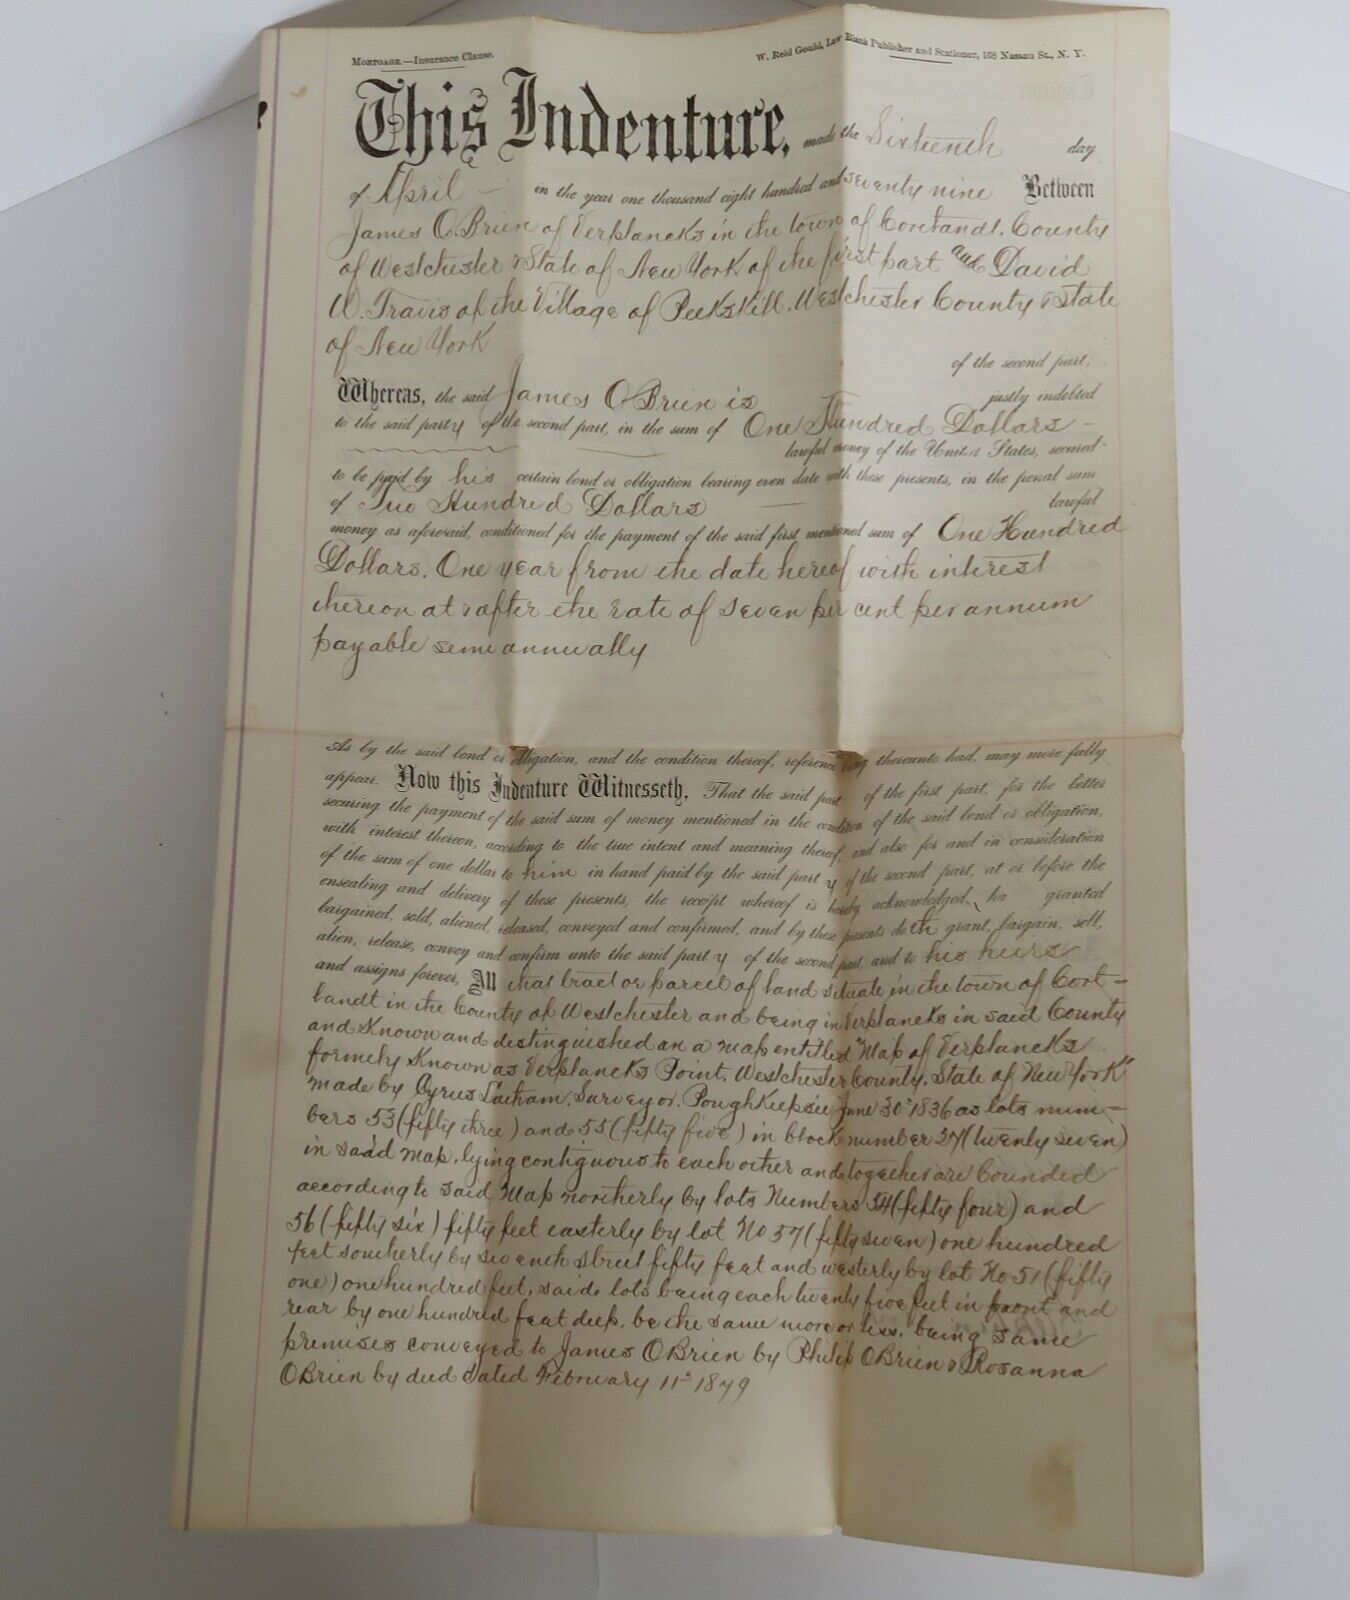 MORTGAGE.—Insurance Clause. W. Reid Gould, Law Blank Publisher and Stationer, 168 Nassau St., N. Y.
This Indenture, made the Sixteenth day
of April in the year one thousand eight hundred and seventy nine Between
James OBrien of Verplancks in the town of Cortlandt, County
of Westchester & State of New York of the first part and David
W. Travis of the Village of Peekskill, Westchester County & State
of New York
of the second part,
Whereas, the said James OBrien is justly indebted
to the said party of the second part, in the sum of One Hundred Dollars —
lawful money of the United States, secured
to be paid by his certain bond or obligation bearing even date with these presents, in the penal sum
of Two Hundred Dollars — lawful
money as aforesaid, conditioned for the payment of the said first mentioned sum of One Hundred
Dollars. One year from the date hereof with interest
thereon at & after the rate of seven per cent per annum
payable semi annually
As by the said bond or obligation, and the condition thereof, reference being thereunto had, may more fully
appear. Now this Indenture Witnesseth, That the said part of the first part, for the better
securing the payment of the said sum of money mentioned in the condition of the said bond or obligation,
with interest thereon, according to the true intent and meaning thereof, and also for and in consideration
of the sum of one dollar to him in hand paid by the said party of the second part, at or before the
ensealing and delivery of these presents, the receipt whereof is hereby acknowledged, ha granted
bargained, sold, aliened, released, conveyed and confirmed, and by these presents doth grant, bargain, sell,
alien, release, convey and confirm unto the said party of the second part, and to his heirs
and assigns forever, All that tract or parcel of land situate in the town of Cort-
landt in the County of Westchester and being in Verplancks in said County
and Known and distinguished on a map entitled "Map of Verplancks
formerly Known as Verplancks Point, Westchester County, State of New York"
made by Cyrus Latham, Surveyor, Poughkeepsie June 30th 1836 as lots num-
bers 53 (fifty three) and 55 (fifty five) in block number 27 (twenty seven)
in said map, lying contiguous to each other and together are bounded
according to said Map northerly by lots Numbers 54 (fifty four) and
56 (fifty six) fifty feet easterly by lot No 57 (fifty seven) one hundred
feet southerly by seventh street fifty feet and westerly by lot No 51 (fifty
one) one hundred feet, said lots being each twenty five feet in front and
rear by one hundred feet deep, be the same more or less. being same
premises conveyed to James OBrien by Philip OBrien & Rosanna
OBrien by deed dated February 11th 1879